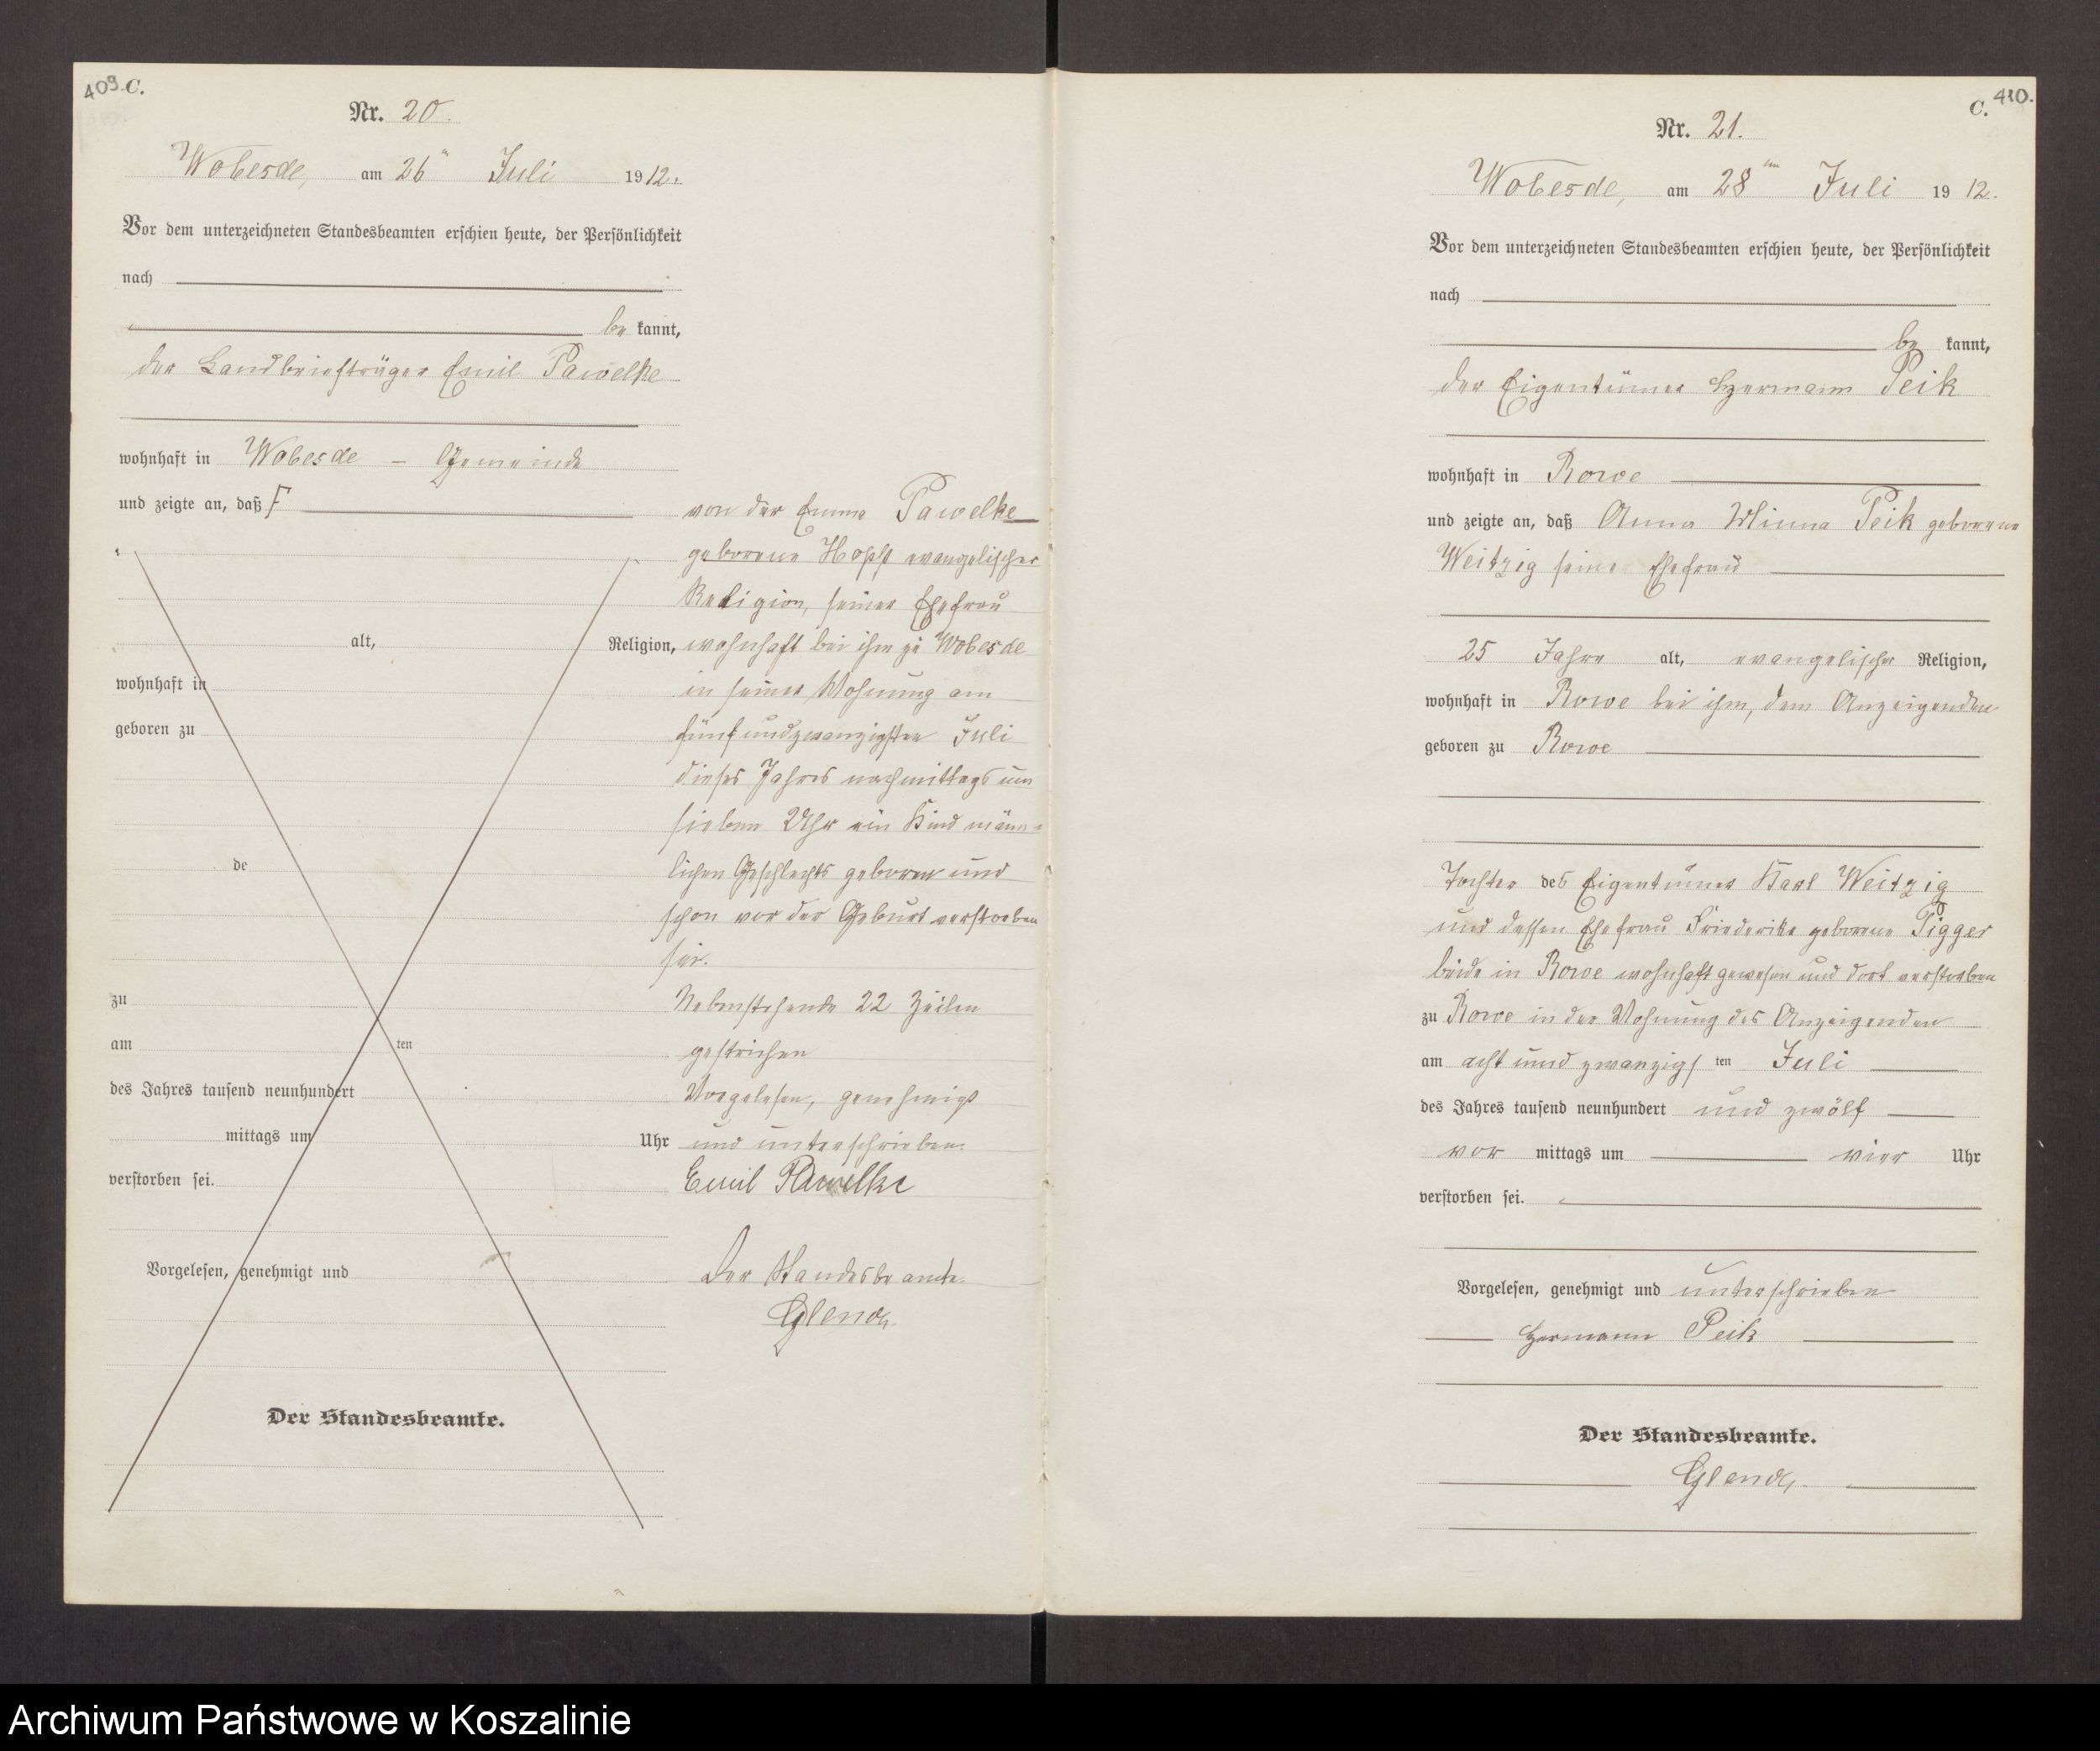 409. C.
Nr. 20.
Wobesde, am 26 Juli 1912.
Vor dem unterzeichneten Standesbeamten erschien heute, der Persönlichkeit
nach
be kannt,
der Landbriefträger Emil Pawelke
wohnhaft in Wobesde – Gemeinde
und zeigte an, daß
alt, Religion,
wohnhaft in
geboren zu
de
zu
am ten
des Jahres tausend neunhundert
mittags um Uhr
verstorben sei.
Vorgelesen, genehmigt und
Der Standesbeamte.
von der Emma Pawelke
geborene Hopp evangelischer
Religion, seiner Ehefrau
wohnhaft bei ihm zu Wobesde
in seiner Wohnung am
fünfundzwanzigsten Juli
dieses Jahres nachmittags um
sieben Uhr ein Kind männ-
lichen Geschlechts geboren und
schon vor der Geburt verstorben
sei.
Nebenstehende 22 Zeilen
gestrichen
Vorgelesen, genehmigt
und unterschrieben.
Emil Pawelke
Der Standesbeamte.
C. 410.
Nr. 21.
Wobesde, am 28 ten Juli 1912.
Vor dem unterzeichneten Standesbeamten erschien heute, der Persönlichkeit
nach
be kannt,
der Eigentümer Hermann Peik
wohnhaft in Rowe
und zeigte an, daß Anna Minna Peik geborene
Weitzig seine Ehefrau
25 Jahre alt, evangelischer Religion,
wohnhaft in Rowe bei ihm, dem Anzeigenden
geboren zu Rowe
Tochter des Eigentümer Karl Weitzig
und dessen Ehefrau Friederike geborene Pigger
beide in Rowe wohnhaft gewesen und dort verstorben
zu Rowe in der Wohnung des Anzeigenden
am acht und zwanzigs ten Juli
des Jahres tausend neunhundert und zwölf
vor mittags um vier Uhr
verstorben sei.
Vorgelesen, genehmigt und unterschrieben
Hermann Peik
Der Standesbeamte.
Archiwum Państwowe w Koszalinie